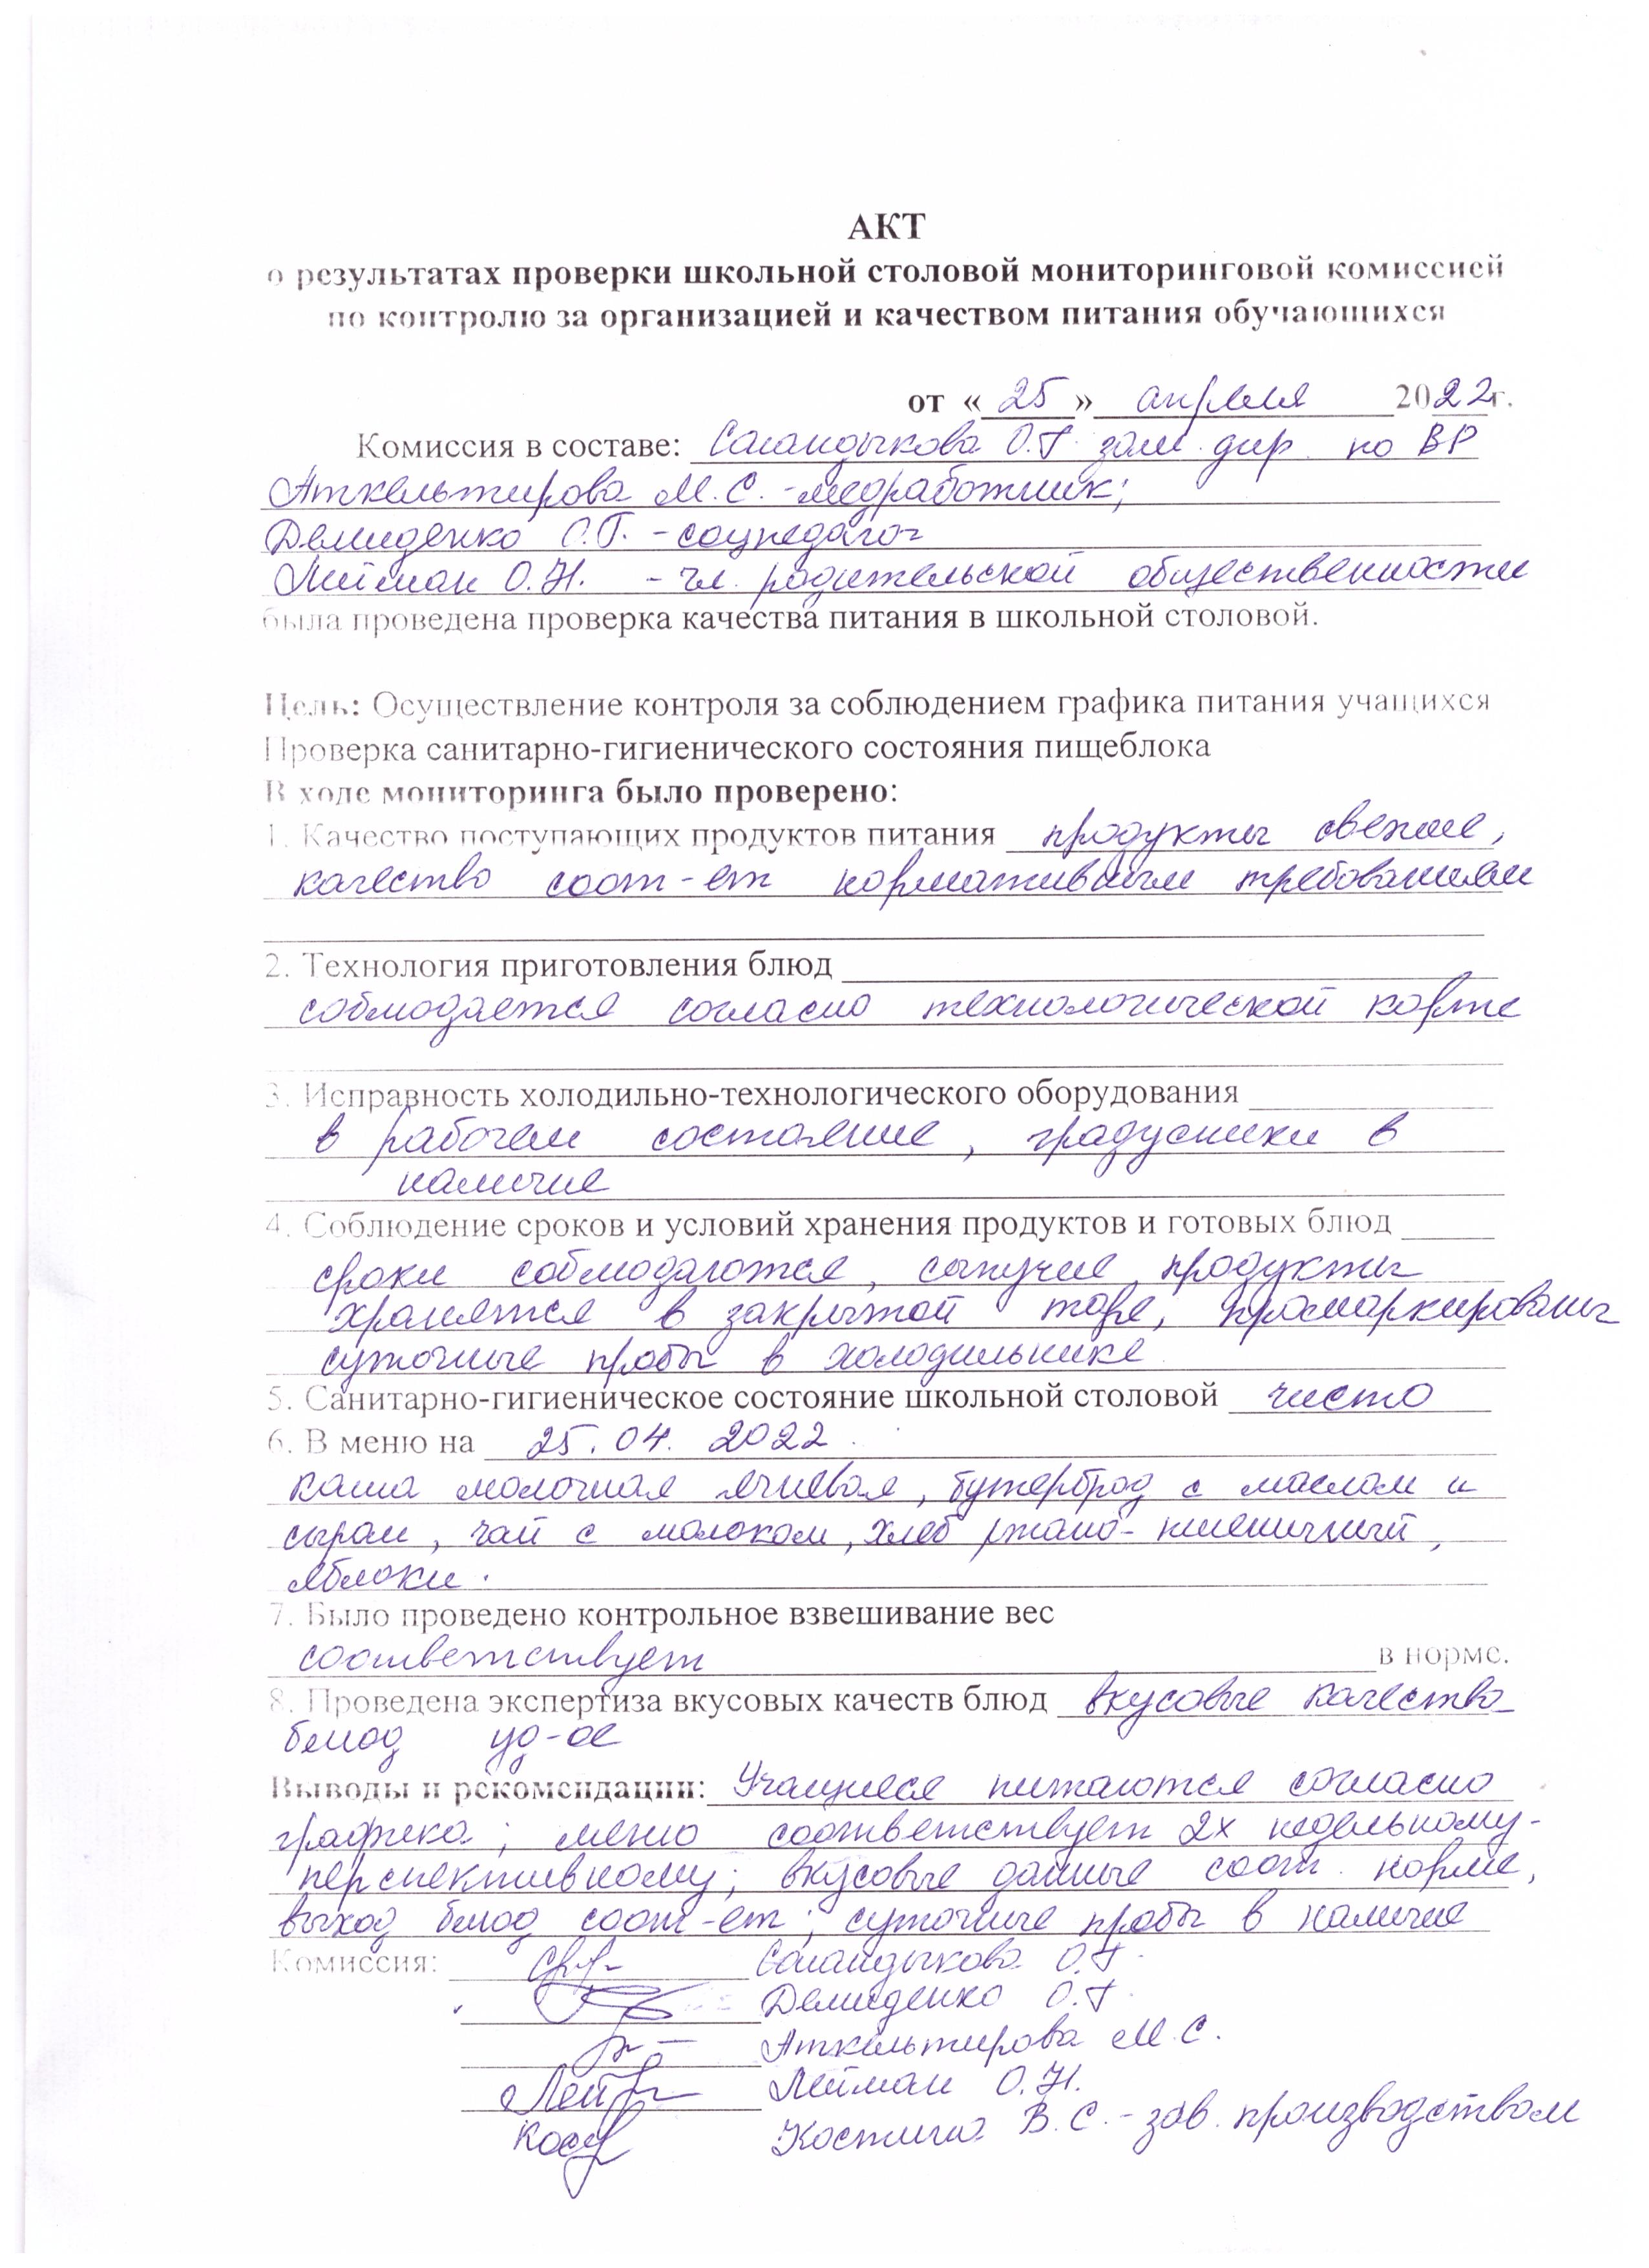 АКТ
о результатах проверки школьной столовой мониторинговой комиссией
по контролю за организацией и качеством питания обучающихся
от «25» апреля 2022г.
Комиссия в составе: Сагандыкова О.Г. зам. дир. по ВР
Аткельтирова М.С. - медработник;
Демиденко О.Г. - соцпедагог
Лейман О.Н. - чл. родительской общественности
была проведена проверка качества питания в школьной столовой.
Цель: Осуществление контроля за соблюдением графика питания учащихся
Проверка санитарно-гигиенического состояния пищеблока
В ходе мониторинга было проверено:
1. Качество поступающих продуктов питания продукты свежие,
качество соот-ет нормативным требованиям
2. Технология приготовления блюд
соблюдается согласно технологической карте
3. Исправность холодильно-технологического оборудования
в рабочем состояние, градусники в
наличие
4. Соблюдение сроков и условий хранения продуктов и готовых блюд
сроки соблюдаются, сыпучие продукты
хранятся в закрытой таре, промаркированы
суточные пробы в холодильнике
5. Санитарно-гигиеническое состояние школьной столовой чисто
6. В меню на 25.04.2022.
каша молочная ячневая, бутерброд с маслом и
сыром, чай с молоком, хлеб ржано-пшеничный,
яблоки.
7. Было проведено контрольное взвешивание вес
соответствует в норме.
8. Проведена экспертиза вкусовых качеств блюд вкусовые качества
блюд уд-ое
Выводы и рекомендации: Учащиеся питаются согласно
графика; меню соответствует 2х недельному-
перспективному; вкусовые данные соот. норме,
выход блюд соот-ет; суточные пробы в наличие
Комиссия: Сагандыкова О.Г.
Демиденко О.Г.
Аткельтирова М.С.
Лейман О.Н.
Костина В.С. - зав. производством